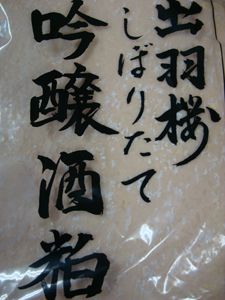 出羽桜
しぼりたて
吟醸酒粕